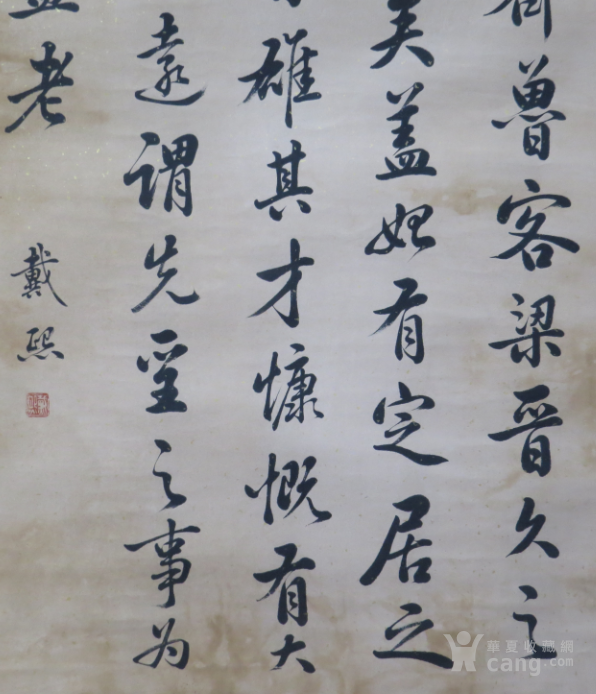 魯客梁晉久之
美蓋始有定居之
雄其才慷慨有大
遠謂先聖之事為
老
戴熙
華夏收藏網
cang.com